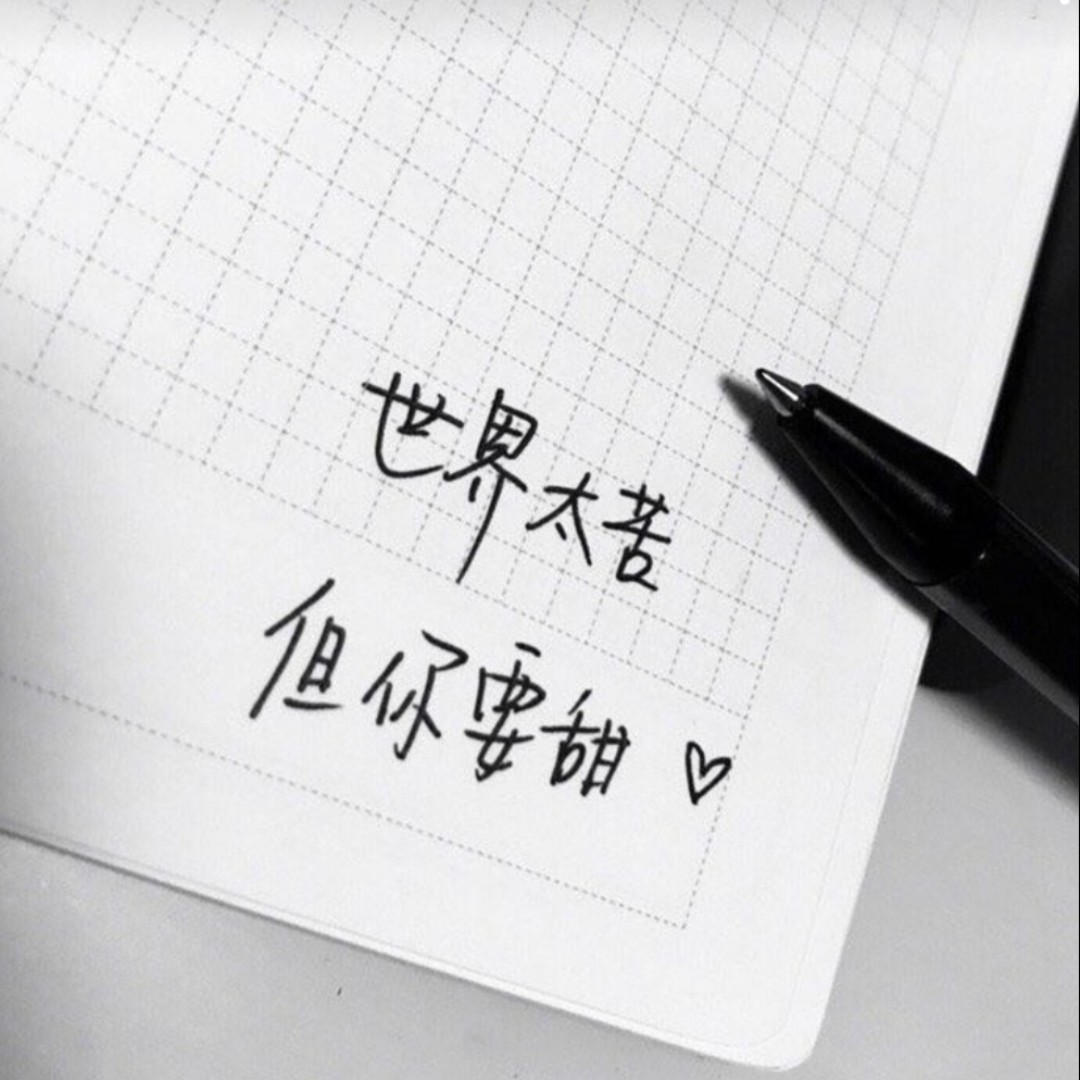 世界太苦
但你要甜 ♡